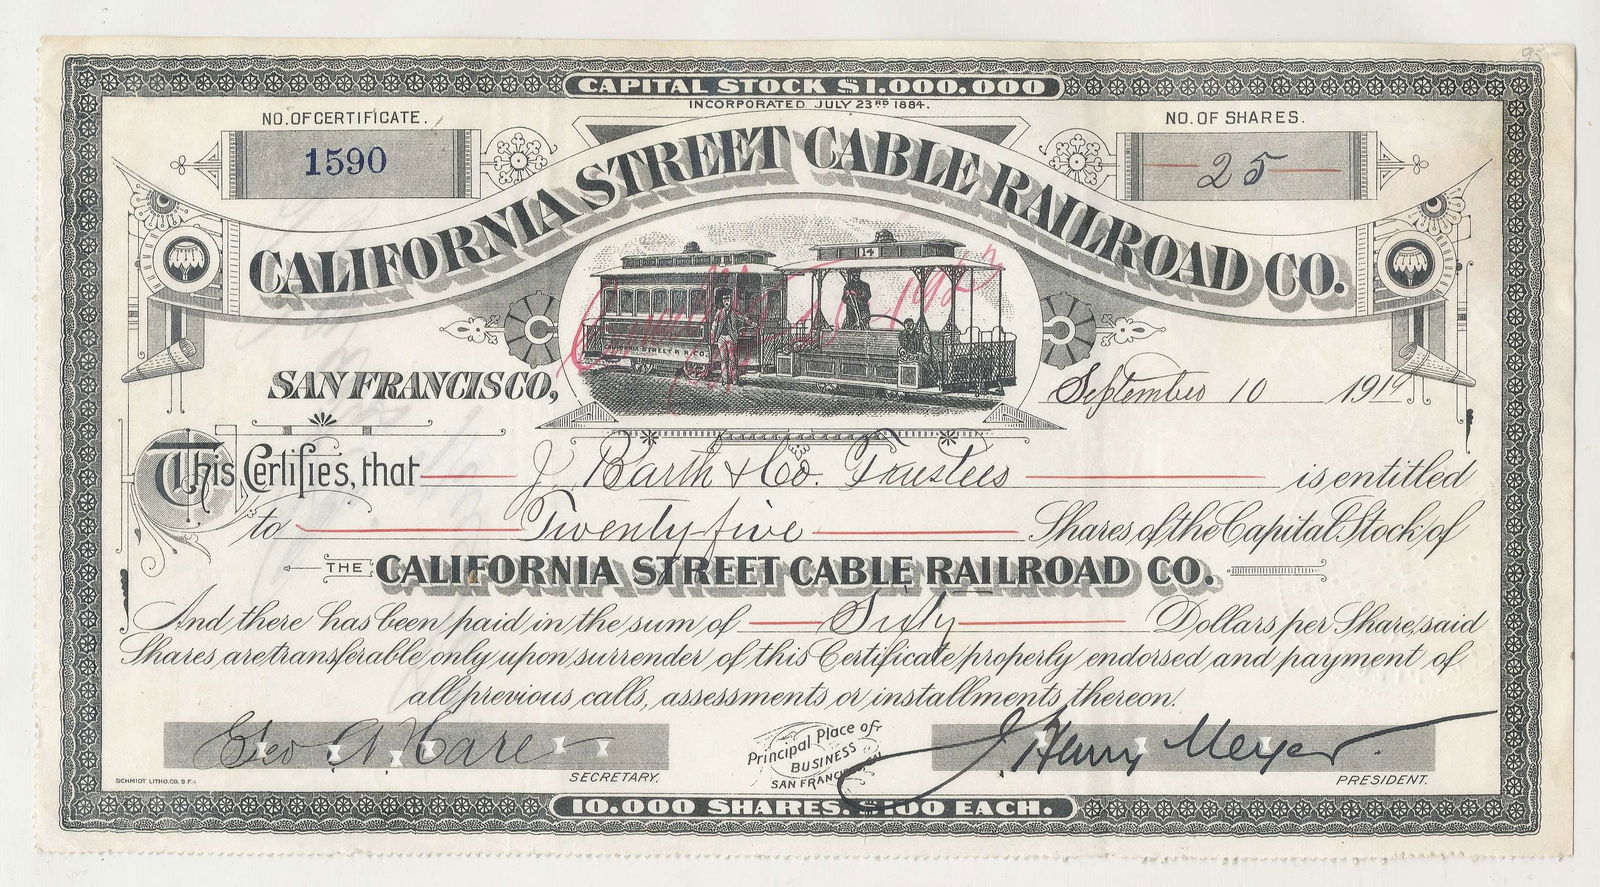 CAPITAL STOCK $1.000.000
INCORPORATED JULY 23RD 1884.
NO. OF CERTIFICATE.
NO. OF SHARES.
1590
25
CALIFORNIA STREET CABLE RAILROAD CO.
14
CALIFORNIA STREET R.R. CO.
SAN FRANCISCO,
September 10 1919
This Certifies, that J. Barth & Co. Trustees is entitled
to Twenty five Shares of the Capital Stock of
THE CALIFORNIA STREET CABLE RAILROAD CO.
And there has been paid in the sum of Sixty Dollars per Share, said
Shares are transferable only upon surrender of this Certificate properly endorsed and payment of
all previous calls, assessments or installments thereon.
Geo A. Hare
SECRETARY.
Principal Place of
BUSINESS
SAN FRANCISCO
J. Henry Meyer.
PRESIDENT.
SCHMIDT LITHO. CO. S.F.
10.000 SHARES. $100 EACH.